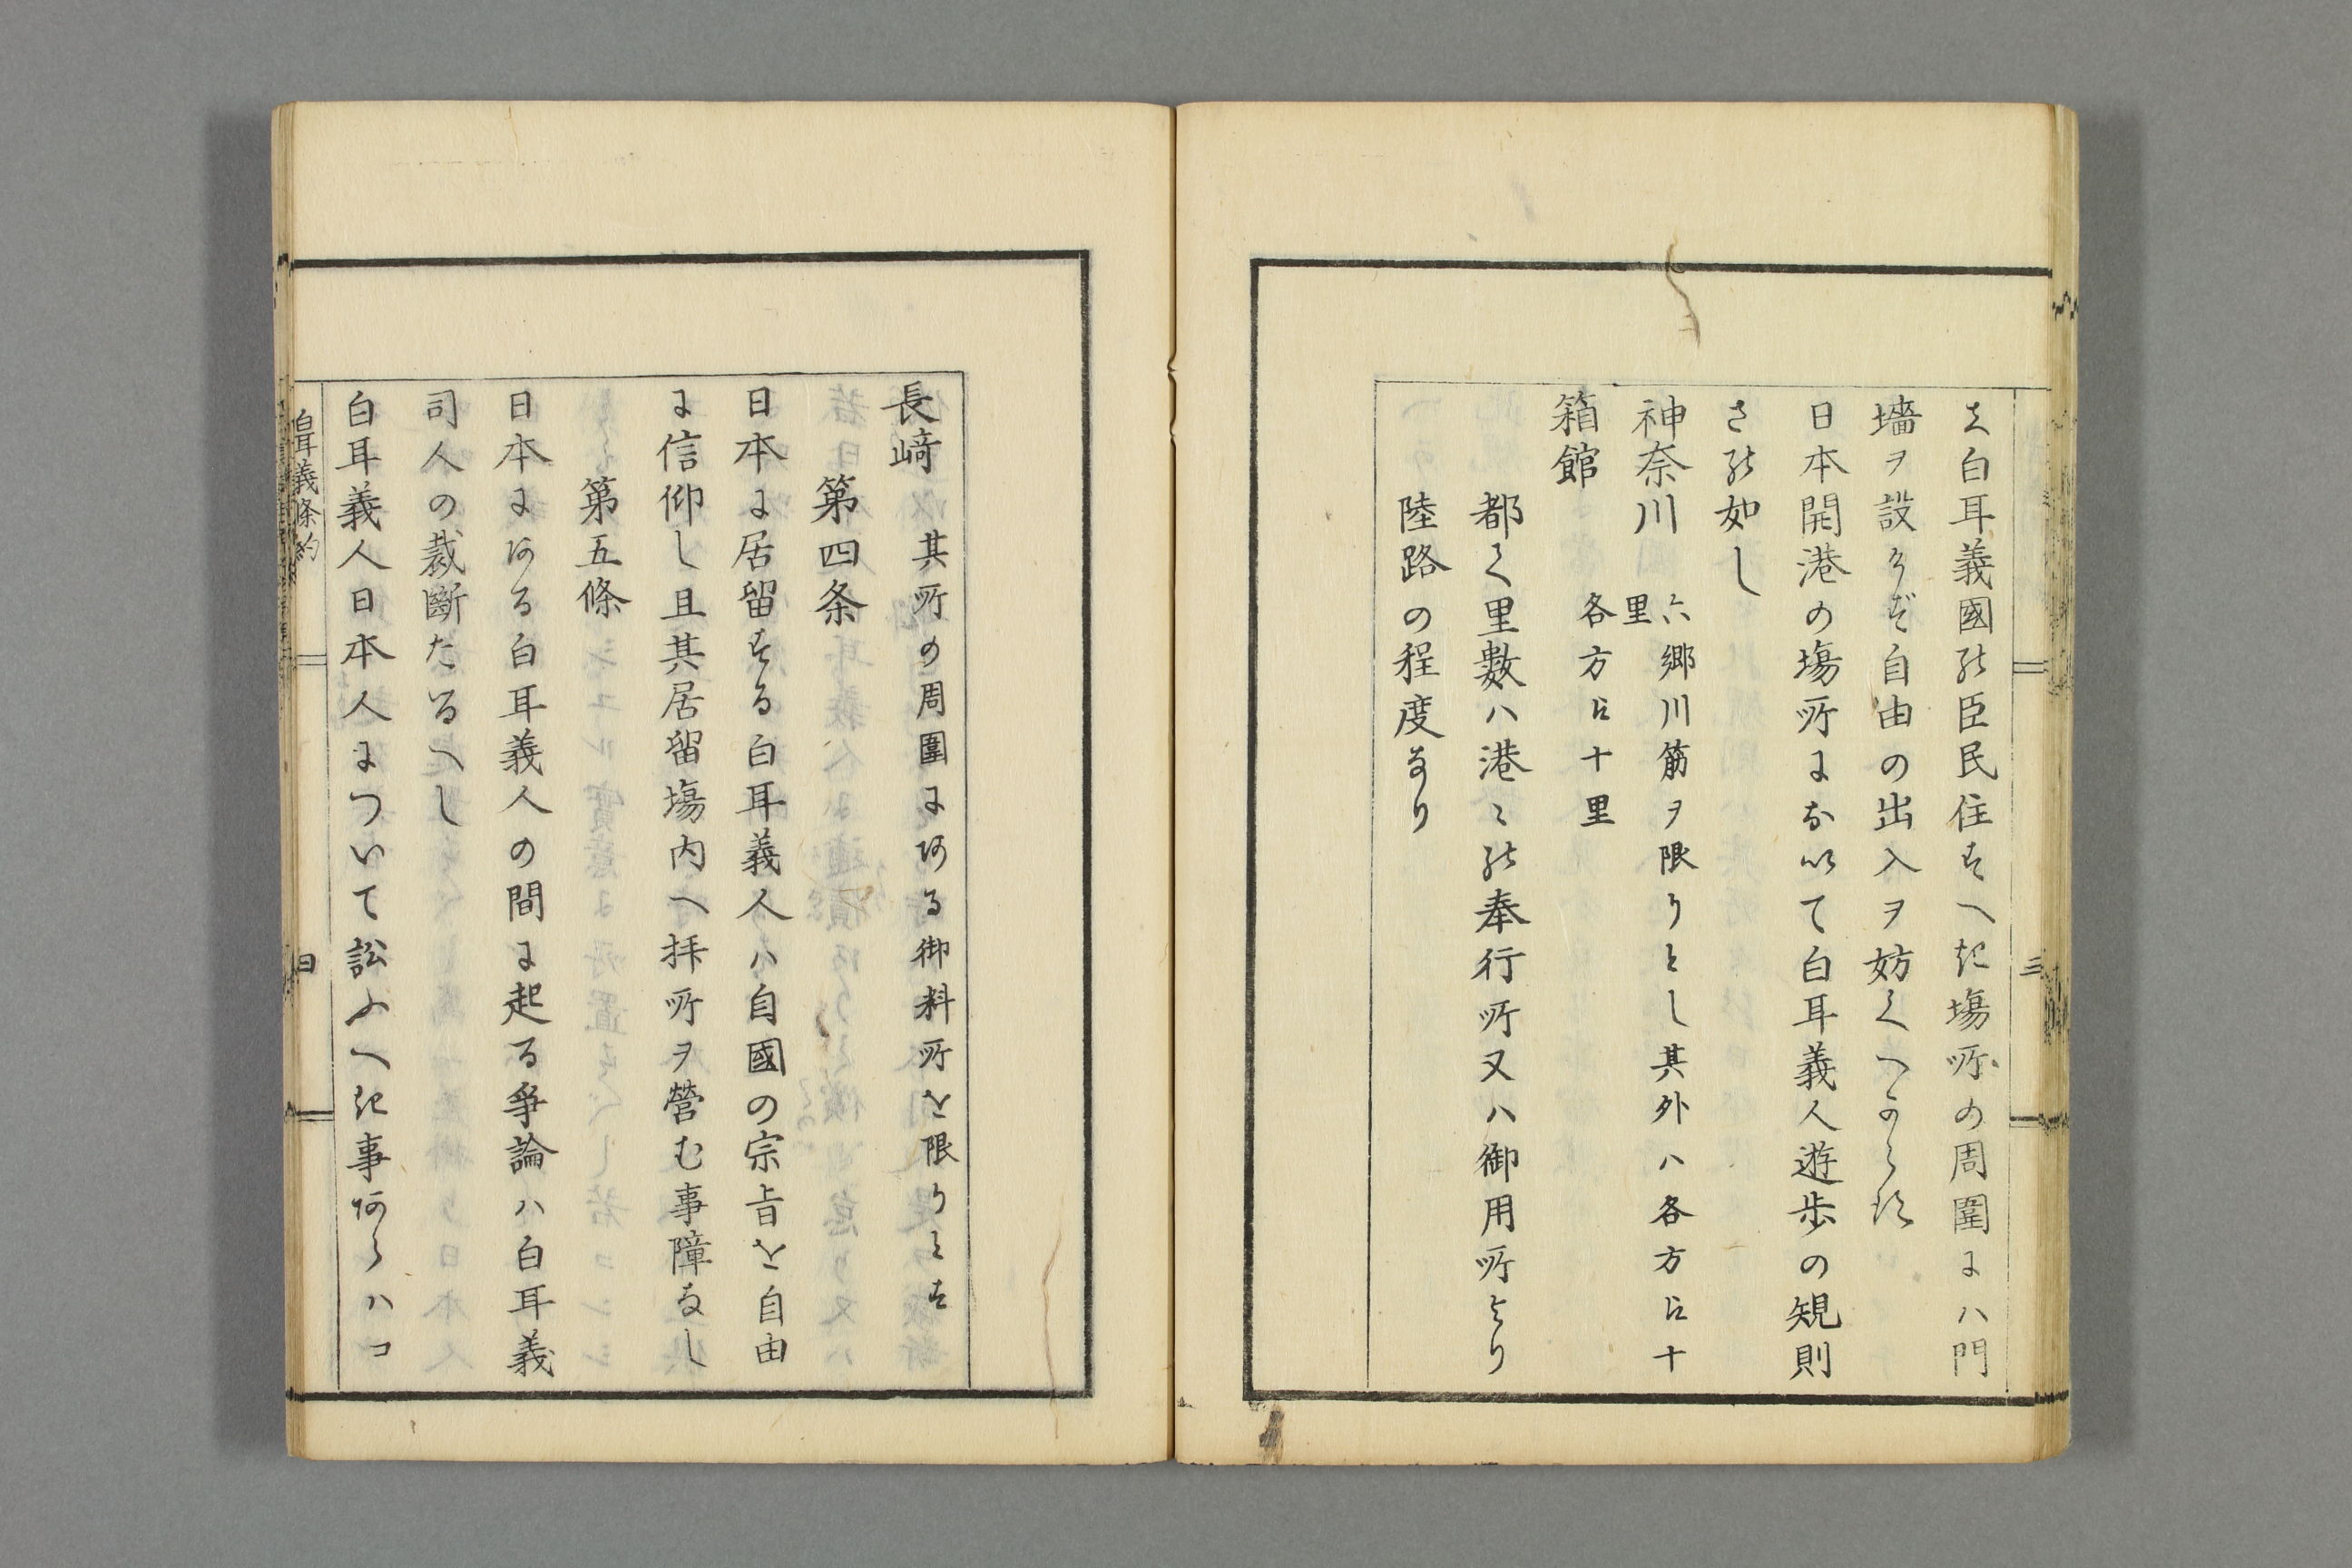 又白耳義國の臣民住すへき塲所の周圍にハ門
墻ヲ設けず自由の出入ヲ妨くへからす
日本開港の塲所において白耳義人遊歩の規則
左の如し
神奈川 六郷川筋ヲ限りとし其外ハ各方に十
里
箱館 各方に十里
都て里數ハ港々の奉行所又ハ御用所より
陸路の程度なり
三
長﨑 其所の周圍にある御料所を限りとす
第四条
日本に居留する白耳義人ハ自國の宗旨を自由
に信仰し且其居留塲内へ拝所ヲ營む事障なし
第五條
日本にある白耳義人の間に起る爭論ハ白耳義
司人の裁斷たるへし
白耳義人日本人について訟ふへき事あらハコ
白耳義條約